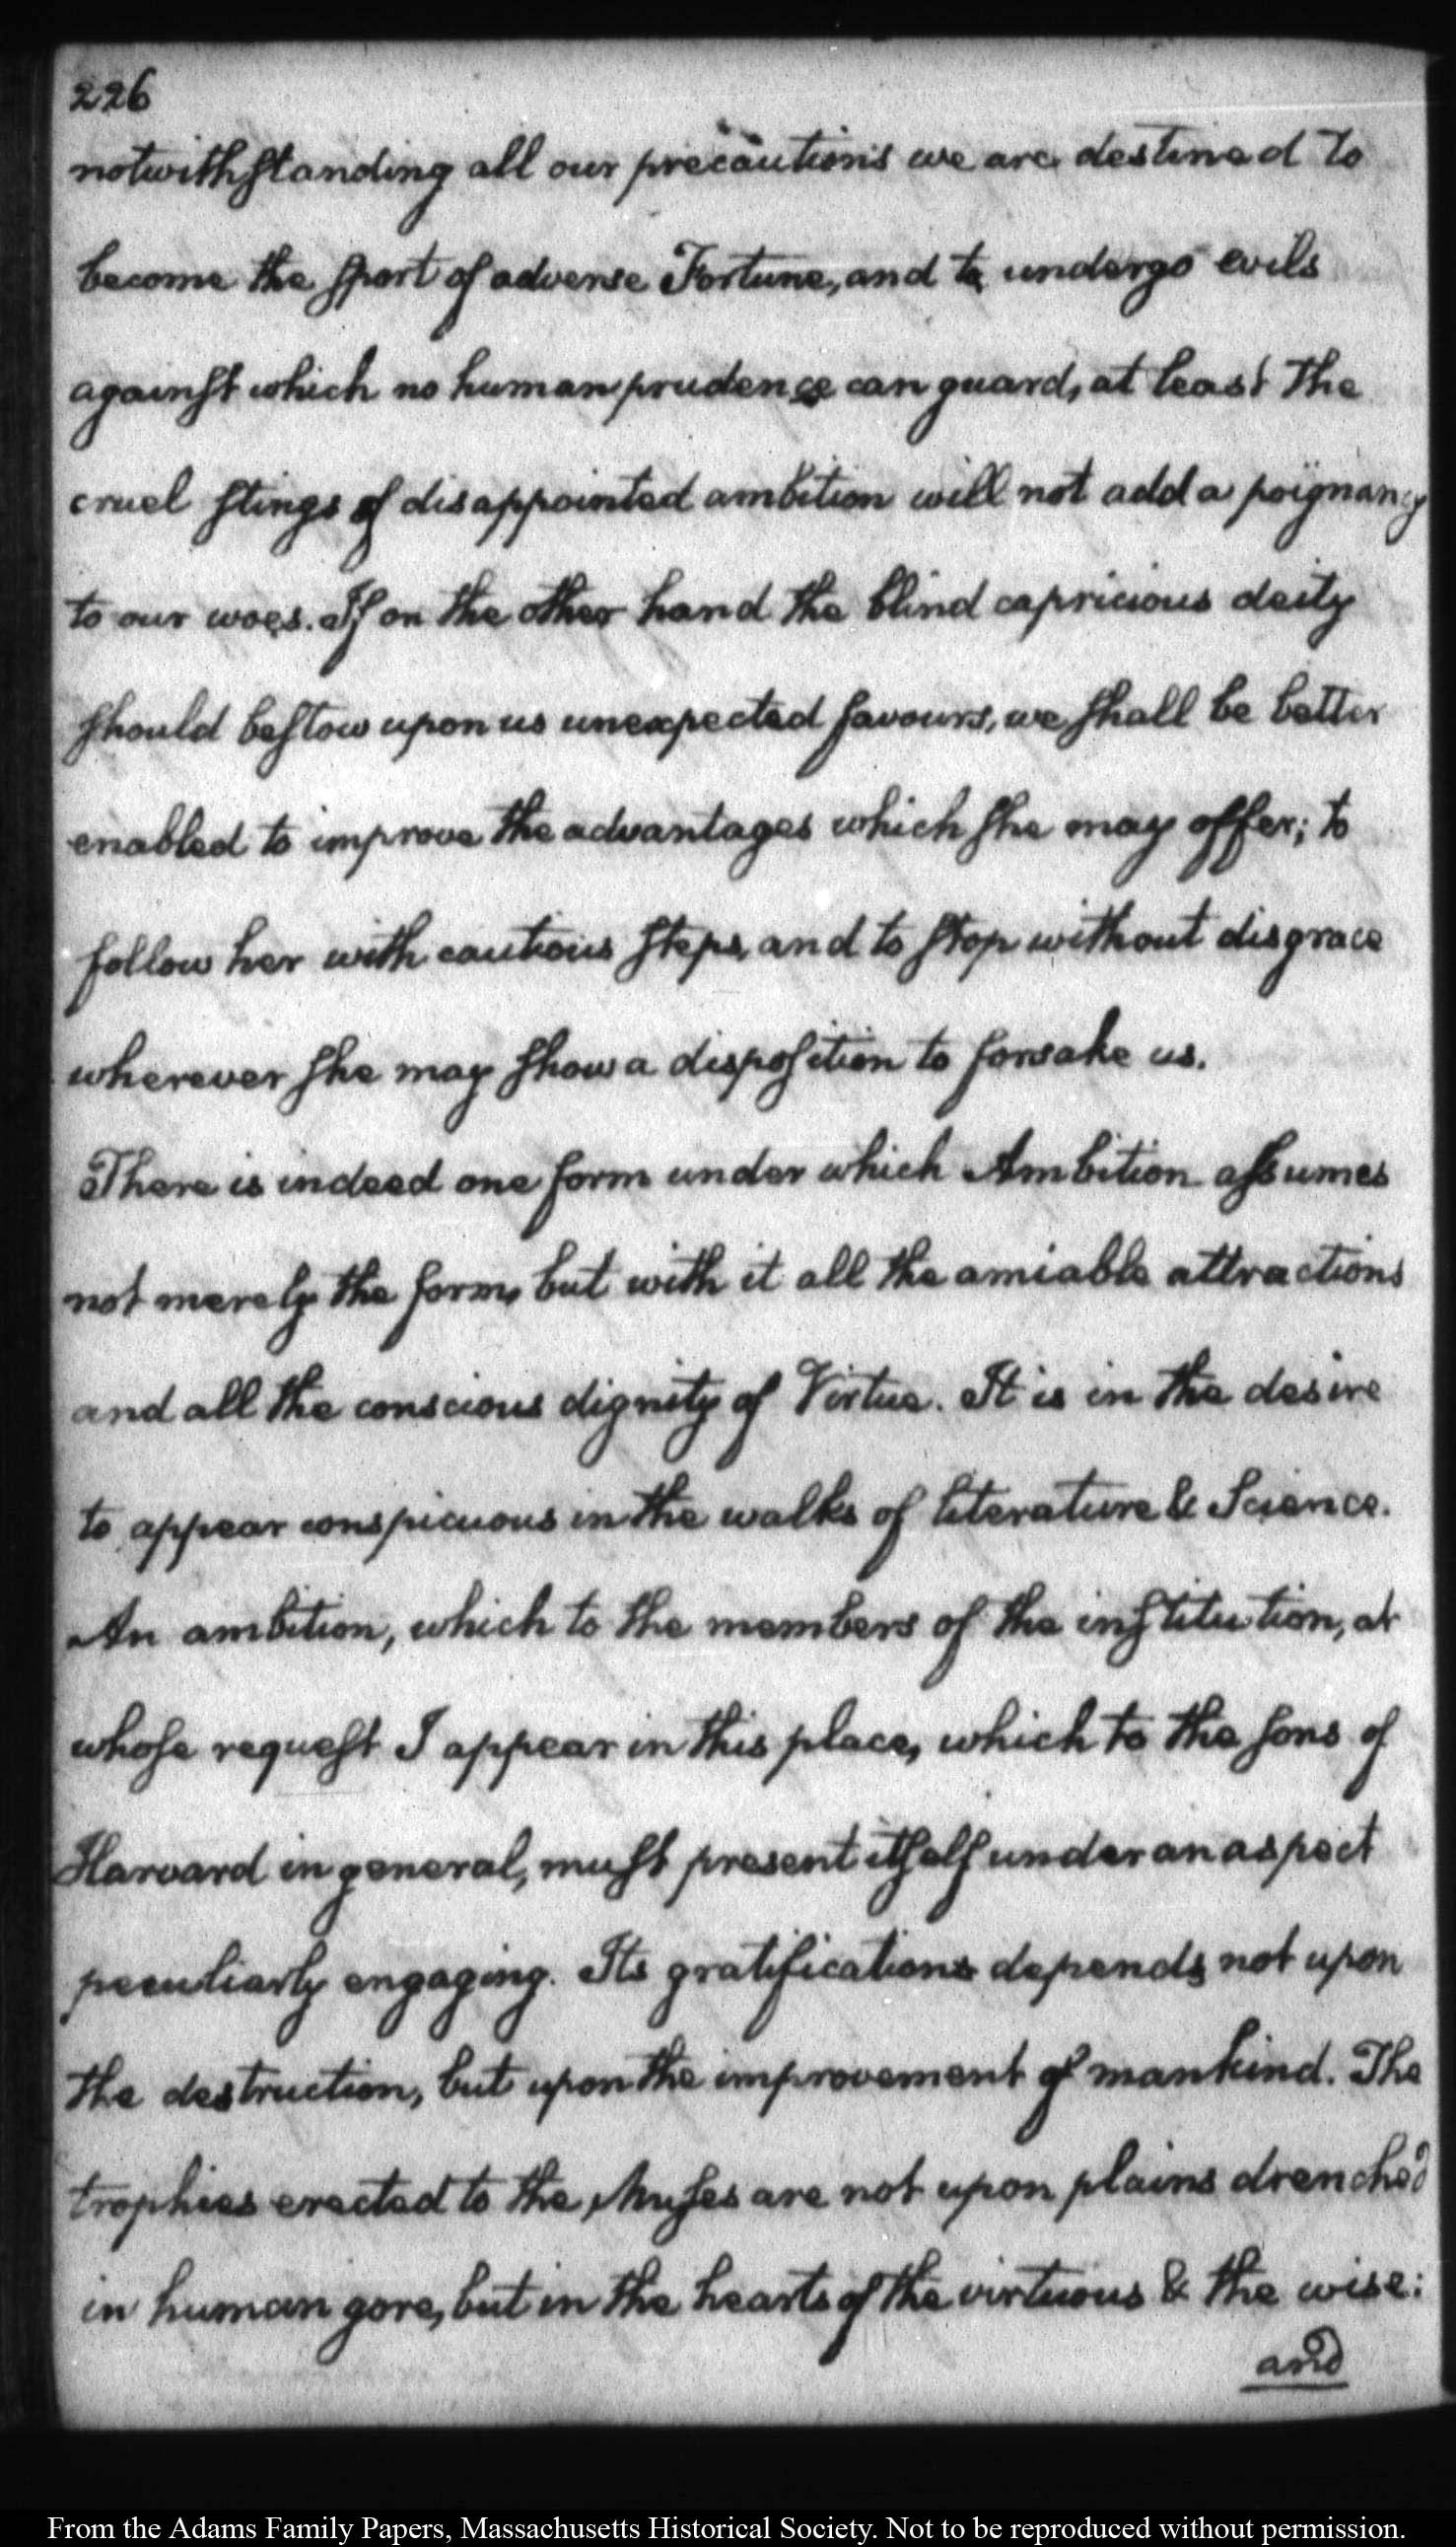 226
notwithstanding all our precautions we are destined to
become the sport of adverse Fortune, and to undergo evils
against which no human prudence can guard, at least the
cruel stings of disappointed ambition will not add a poignancy
to our woes. If on the other hand the blind capricious deity
should bestow upon us unexpected favours, we shall be better
enabled to improve the advantages which she may offer; to
follow her with cautious steps, and to stop without disgrace
wherever she may show a disposition to forsake us.
There is indeed one form under which Ambition assumes
not merely the form, but with it all the amiable attractions
and all the conscious dignity of Virtue. It is in the desire
to appear conspicuous in the walks of literature & Science.
An ambition, which to the members of the institution, at
whose request I appear in this place, which to the sons of
Harvard in general, must present itself under an aspect
peculiarly engaging. Its gratifications depends not upon
the destruction, but upon the improvement of mankind. The
trophies erected to the Muses are not upon plains drench'd
in human gore, but in the hearts of the virtuous & the wise:
and
From the Adams Family Papers, Massachusetts Historical Society. Not to be reproduced without permission.